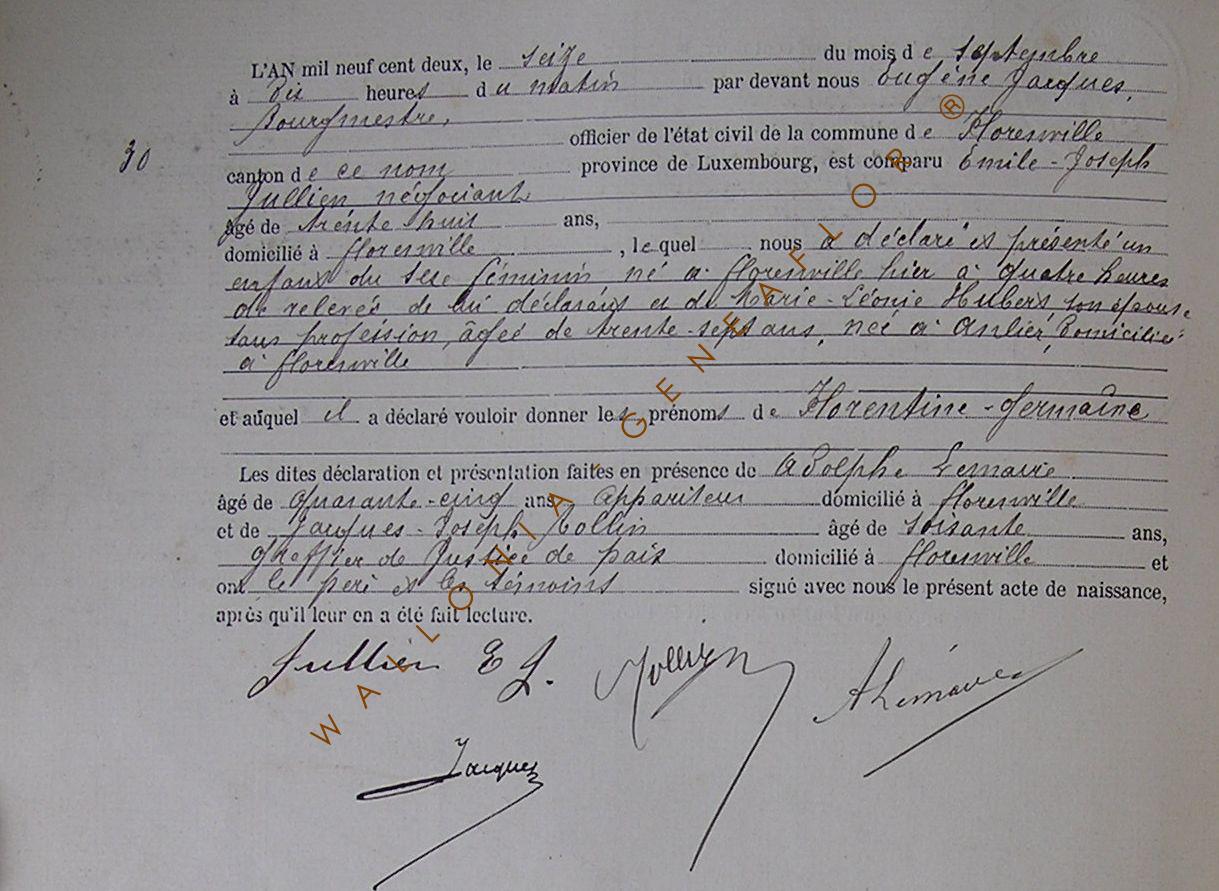 L'AN mil neuf cent deux, le seize du mois de septembre
à dix heures du matin par devant nous Eugène Jacques,
Bourgmestre,
officier de l'état civil de la commune de Florenville
30
canton de ce nom province de Luxembourg, est comparu Emile-Joseph
Jullien négociant
âgé de trente huit ans,
domicilié à florenville, lequel nous a déclaré et présenté un
enfant du sexe féminin né à florenville hier à quatre heures
de relevés de lui déclarant et de Marie-Léonie Hubert, son épouse
sans profession, âgée de trente-sept ans, née à Anlier, domiciliée
à florenville
et auquel il a déclaré vouloir donner les prénoms de Florentine-Germaine
Les dites déclaration et présentation faites en présence de Adolphe Lemaire
âgé de quarante-cinq ans appariteur domicilié à florenville
et de Jacques-Joseph Collin âgé de soixante ans,
Greffier de Justice de paix domicilié à florenville et
ont le père et les témoins signé avec nous le présent acte de naissance,
après qu'il leur en a été fait lecture.
Jullien E J. A Lemaire
Jacques
WALLONIA-GENEAFLOR®